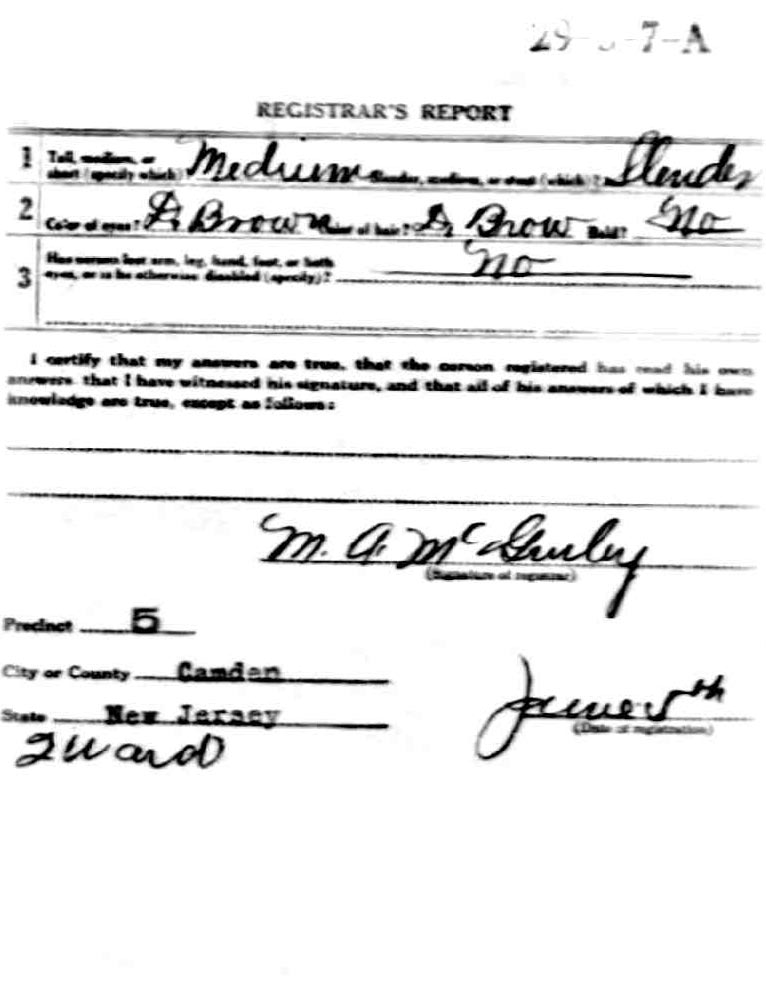 29- -7-A
REGISTRAR'S REPORT
1 Tall, medium, or
short (specify which)? Medium Slender, medium, or stout (which)? Slender
2 Color of eyes? D. Brown Color of hair? D. Brow Bald? No
3 Has person lost arm, leg, hand, foot, or both
eyes, or is he otherwise disabled (specify)? No
I certify that my answers are true, that the person registered has read his own
answers, that I have witnessed his signature, and that all of his answers of which I have
knowledge are true, except as follows:
M. A. McGurley
(Signature of registrar)
Precinct 5
City or County Camden
State New Jersey
June 5th
(Date of registration)
2 Ward